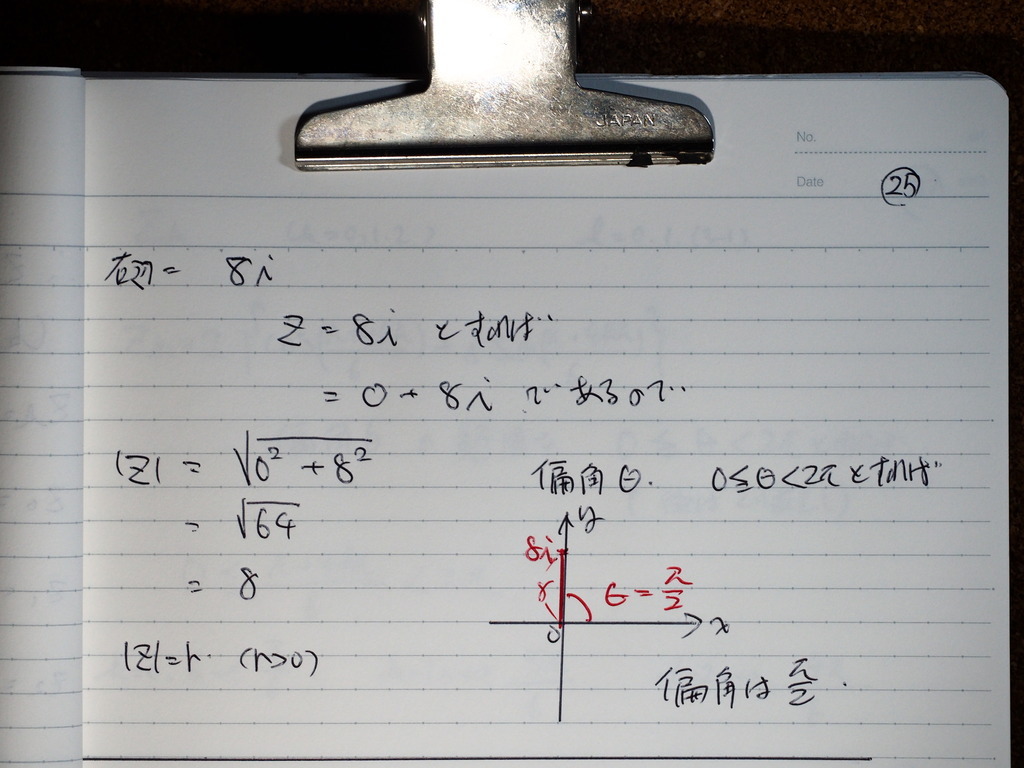 JAPAN
No.
Date
㉕
右辺 = 8i
Z = 8i とすれば
= 0 + 8i であるので
|Z| = √(0² + 8²)
= √64
= 8
|Z| = r (r>0)
偏角θ. 0≦θ<2π とすれば
y
8i
r
θ = π/2
0
x
偏角は π/2.